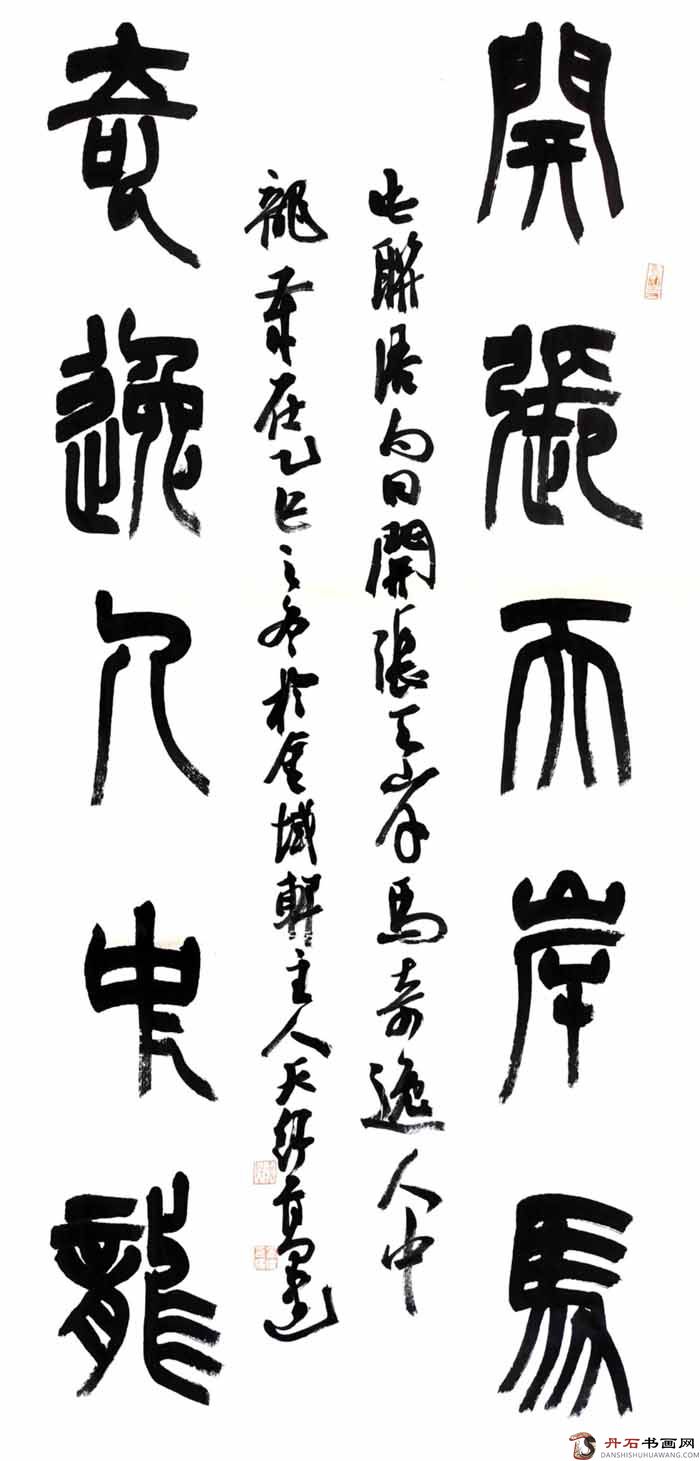 開張天岸馬
此聯語句曰開張天岸馬奇逸人中
龍歲在乙巳之冬於金城軒主人天
奇逸人中龍
丹石书画网
DANSHISHUHUAWANG.COM